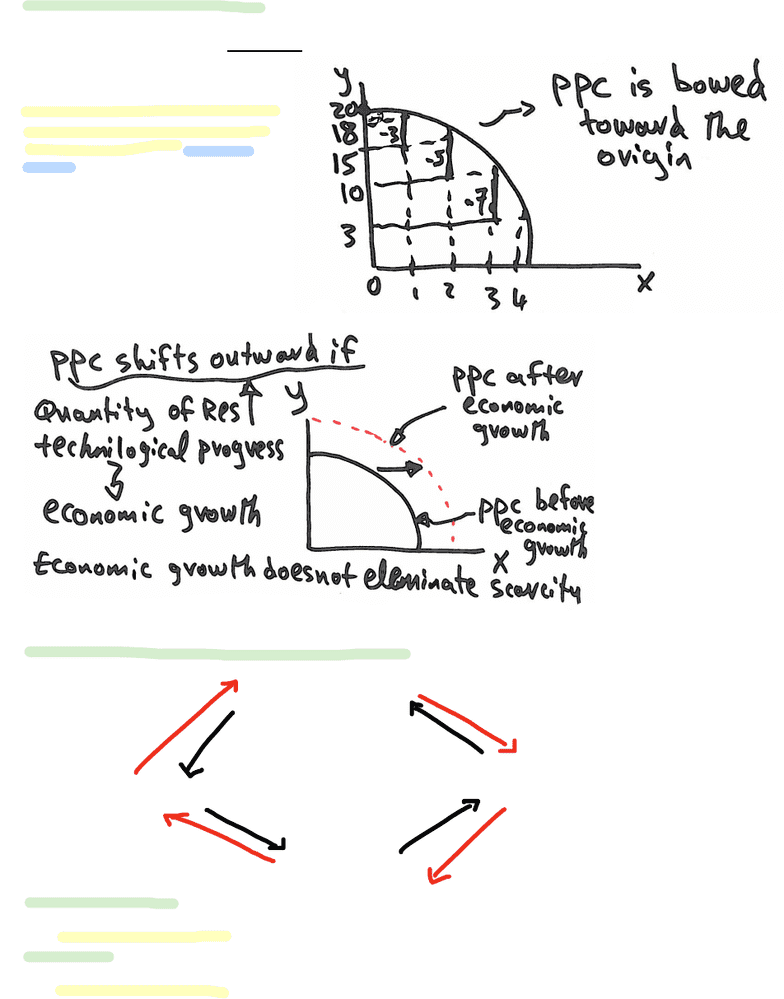 y
20
18
15
10
3
-3
-5
-7
0 1 2 3 4 X
ppc is bowed
toward the
origin
ppc shifts outward if
Quantity of Res
technilogical progress
economic growth
y
X
ppc after
economic
growth
ppc before
economic
growth
Economic growth does not eleminate scarcity